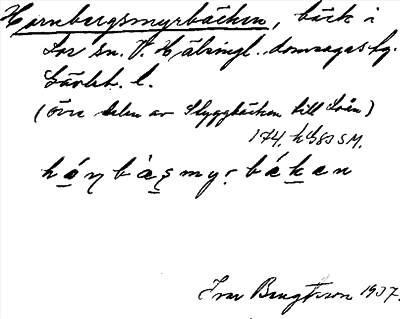 Hornbergsmyrbäcken, bäck i
Los sn. V. Hälsingl. domsagas tg.
Gävleb. l.
(övre delen av Skyggbäcken till Loån)
174.
hóṇbàșmyr bákan
Ivar Bengtsson 1937.